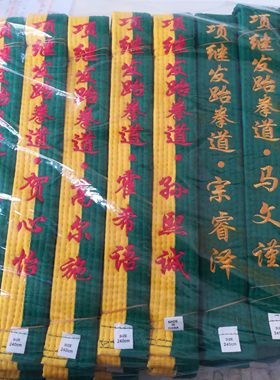 项继发跆拳道·贺心怡
项继发跆拳道·尔施
项继发跆拳道·霍希语
项继发跆拳道·孙熙诚
项继发跆拳道·宗睿泽
项继发跆拳道·马文谨
SIZE
240cm
SIZE
240cm
SIZE
240cm
SIZE
240cm
MADE IN
CHINA
SIZE
240cm
SIZE
240cm